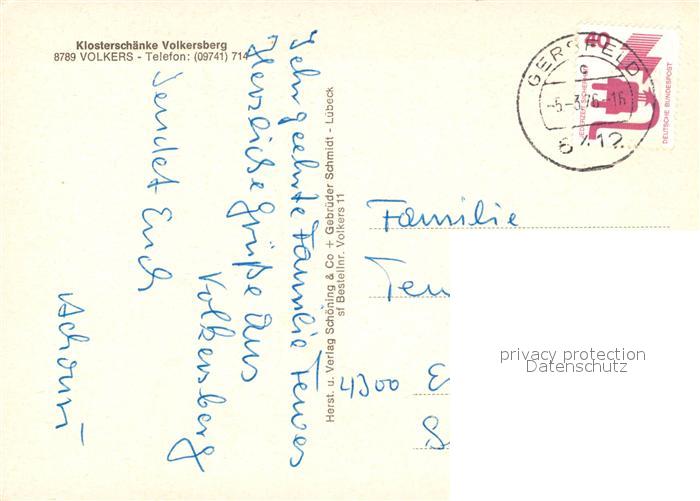 Klosterschänke Volkersberg
8789 VOLKERS - Telefon: (09741) 714
Sehr geehrte Familie Tewes
Herzliche Grüße aus
Volkersberg
sendet Euch
Herst. u. Verlag Schöning & Co + Gebrüder Schmidt - Lübeck
sf Bestellnr. Volkers 11
GERSFELD
-5.-3.76-16
6412
40
JEDERZEIT SICHERHEIT
DEUTSCHE BUNDESPOST
Familie
Tew
4300 E
S
privacy protection
Datenschutz